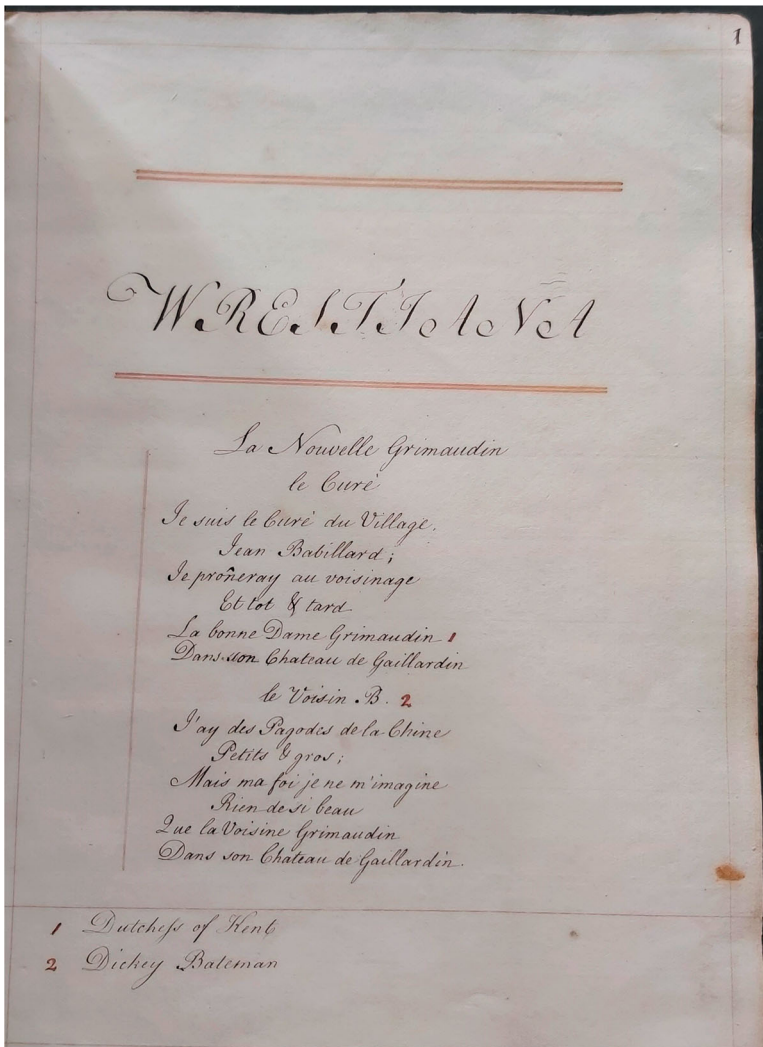 1
WRESTIANA
La Nouvelle Grimaudin
le Curé
Je suis le Curé du Village,
Jean Babillard;
Je prôneray au voisinage
Et tot & tard
La bonne Dame Grimaudin 1
Dans son Chateau de Gaillardin
le Voisin B. 2
J'ay des Pagodes de la Chine
Petits & gros;
Mais ma foi je ne m'imagine
Rien de si beau
Que la Voisine Grimaudin
Dans son Chateau de Gaillardin.
1 Dutchess of Kent
2 Dickey Bateman